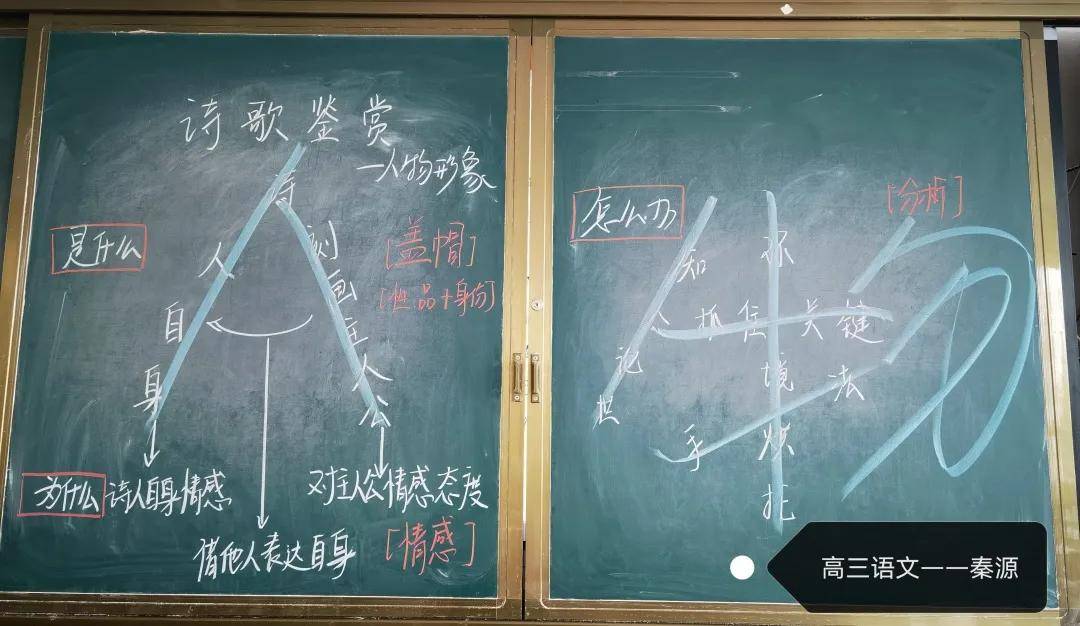 诗歌鉴赏
—人物形象
是什么
诗人自身
刻画主人公
[盖帽]
[性品+身份]
为什么
诗人自身情感
对主人公情感态度
借他人表达自身
[情感]
怎么办
[分析]
知人论世
环境烘托
抓住关键
手法
高三语文——秦源